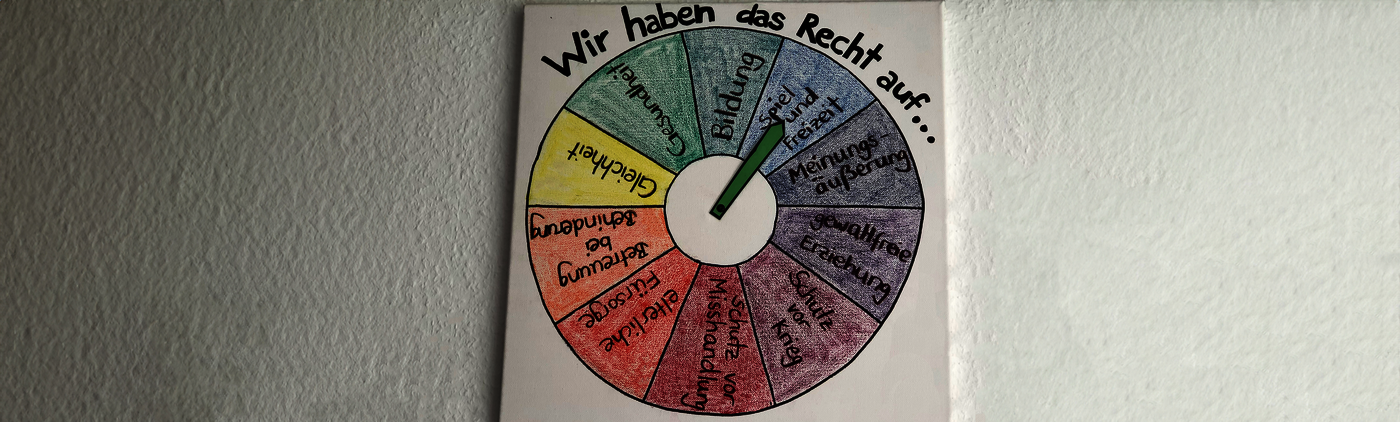 Wir haben das Recht auf...
Bildung
Spiel
und
Freizeit
Meinungs-
äußerung
gewaltfreie
Erziehung
Schutz
vor
Krieg
Schutz vor
Misshandlung
elterliche
Fürsorge
Betreuung
bei
Behinderung
Gleichheit
Gesundheit